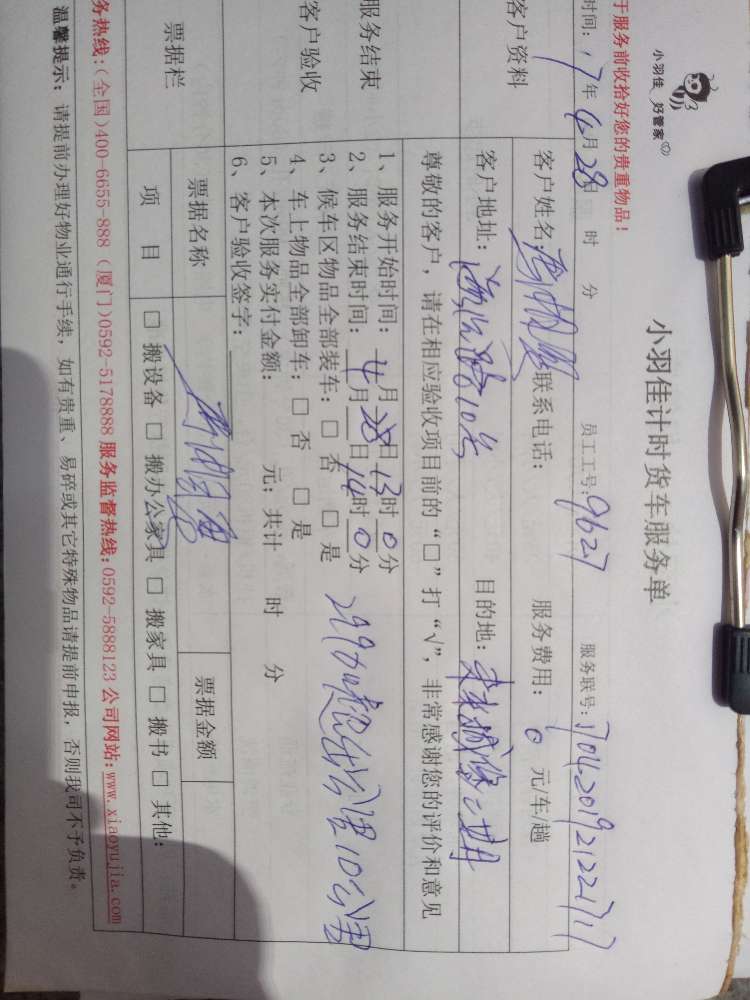 小羽佳 好管家
小羽佳计时货车服务单
于服务前收拾好您的贵重物品！
时间：17年4月28日 时 分 员工工号：9627 服务联号：
客户资料
客户姓名： 联系电话： 服务费用：0 元/车/趟
客户地址： 路10号 目的地： 二期
尊敬的客户，请在相应验收项目前的“□”打“√”，非常感谢您的评价和意见
服务结束
客户验收
1、服务开始时间：4月28日13时0分
2、服务结束时间：4月28日14时0分
3、候车区物品全部装车：□ 否 □ 是
4、车上物品全部卸车：□ 否 □ 是
5、本次服务实付金额： 元；共计 时 分
6、客户验收签字：
公里10公里
票据栏
票据名称 票据金额
项 目 □ 搬设备 □ 搬办公家具 □ 搬家具 □ 搬书 □ 其他：
务热线：（全国）400-6655-888（厦门）0592-5178888 服务监督热线：0592-5888123 公司网站：www.xiaoyujia.com
温馨提示：请提前办理好物业通行手续，如有贵重、易碎或其它特殊物品请提前申报，否则我司不予负责。